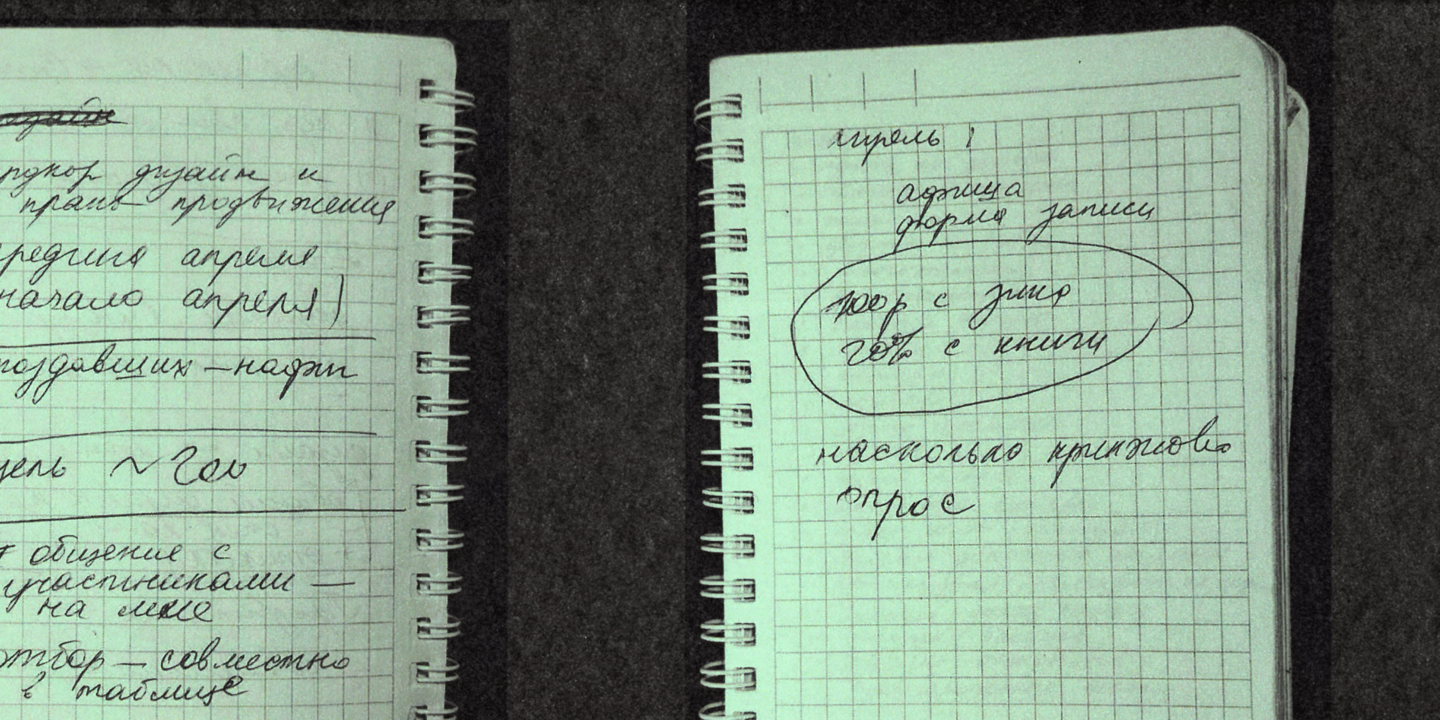 дизайн и
продвижения
апреля
начало апреля)
поздавших – нафиг
цель ~
общение с
участниками —
на мне
отбор — совместно
в таблице
апрель 1
афиша
форма записи
100р с зина
20% с книги
насколько кринжово
опрос